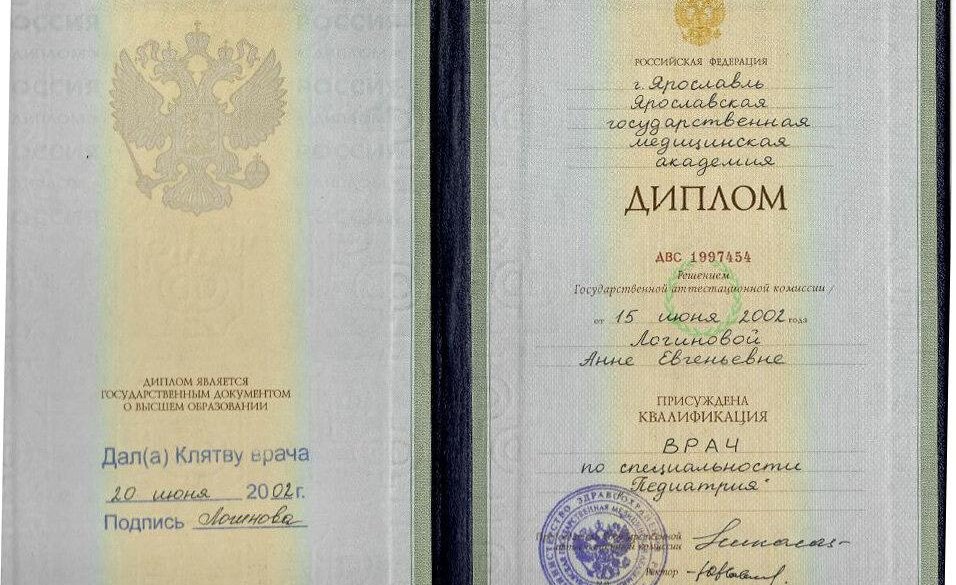 ДИПЛОМ ЯВЛЯЕТСЯ
ГОСУДАРСТВЕННЫМ ДОКУМЕНТОМ
О ВЫСШЕМ ОБРАЗОВАНИИ
Дал(а) Клятву врача
20 июня 2002 г.
Подпись Логинова
РОССИЙСКАЯ ФЕДЕРАЦИЯ
г. Ярославль
Ярославская
государственная
медицинская
академия
ДИПЛОМ
АВС 1997454
Решением
Государственной аттестационной комиссии
от 15 июня 2002 года
Логиновой
Анне Евгеньевне
ПРИСУЖДЕНА
КВАЛИФИКАЦИЯ
ВРАЧ
по специальности
"Педиатрия"
Государственной
аттестационной комиссии
Ректор